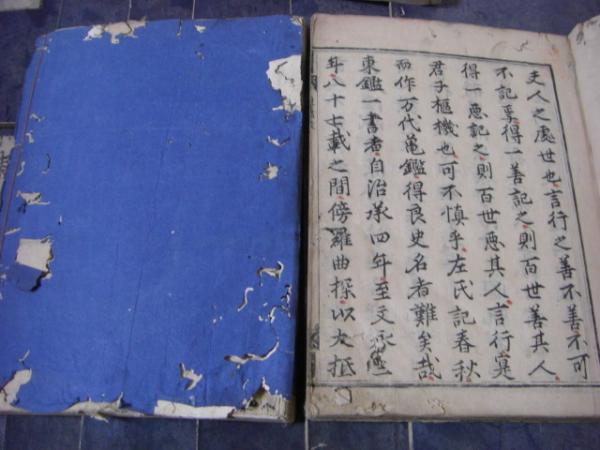 夫人之處世也言行之善不善不可
不記焉得一善記之則百世善其人
得一惡記之則百世惡其人言行寔
君子樞機也可不慎乎左氏記春秋
而作万代亀鑑得良史名者難矣哉
東鑑一書者自治承四年至文永
年八十七載之間傍羅曲探以大抵